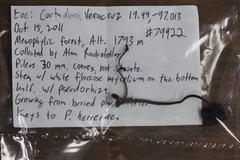 Loc: Cortadura, Veracruz 19.49, -97.013
Oct 15, 2011 #79922
Mesophylic forest, Alt. 1793 m
Collected by Alan Rockefeller
Pileus 30 mm, convex, not striate.
Stem w/ white floccose mycelium on the bottom
half w/ pseudorhiza.
Growing from buried
Keys to P. herrerae.